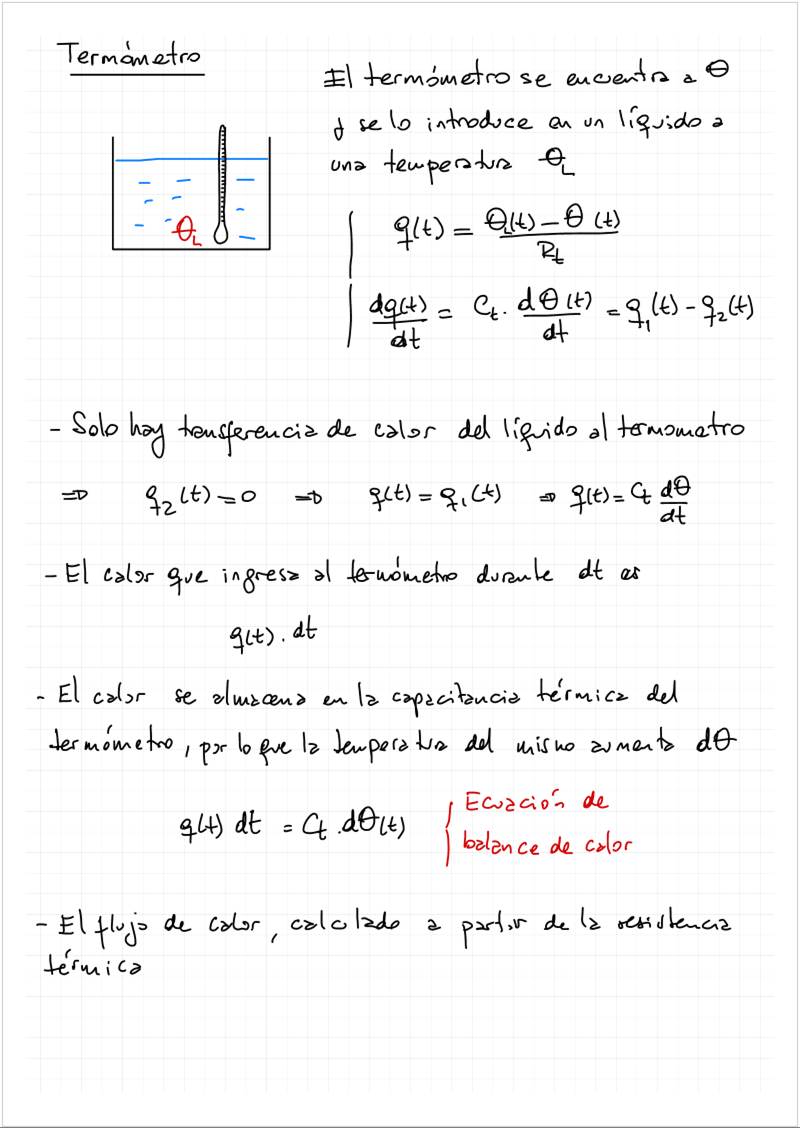 Termómetro
El termómetro se encuentra a θ
y se lo introduce en un líquido a
una temperatura θ_L
θ_L
q(t) = (θ_L(t) − θ(t)) / R_t
dq(t)/dt = C_t · dθ(t)/dt = q_1(t) − q_2(t)
- Solo hay transferencia de calor del líquido al termometro
⇒ q_2(t) = 0 ⇒ q(t) = q_1(t) ⇒ q(t) = C_t dθ/dt
- El calor que ingresa al termómetro durante dt es
q(t) . dt
- El calor se almacena en la capacitancia térmica del
termómetro, por lo que la temperatura del mismo aumenta dθ
q(t) dt = C_t . dθ(t)
Ecuación de
balance de calor
- El flujo de calor, calculado a partir de la resistencia
térmica